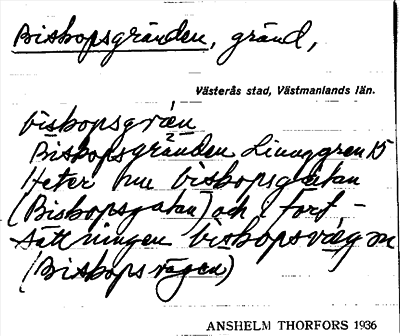 Biskopsgränden, gränd,
Västerås stad, Västmanlands län.
biskopsgræn
Biskopsgränden Linnggren 15
Heter nu biskopsgatan
(Biskopsgatan) och i fort-
sättningen biskopsvägen
(Biskopsvägen)
ANSHELM THORFORS 1936